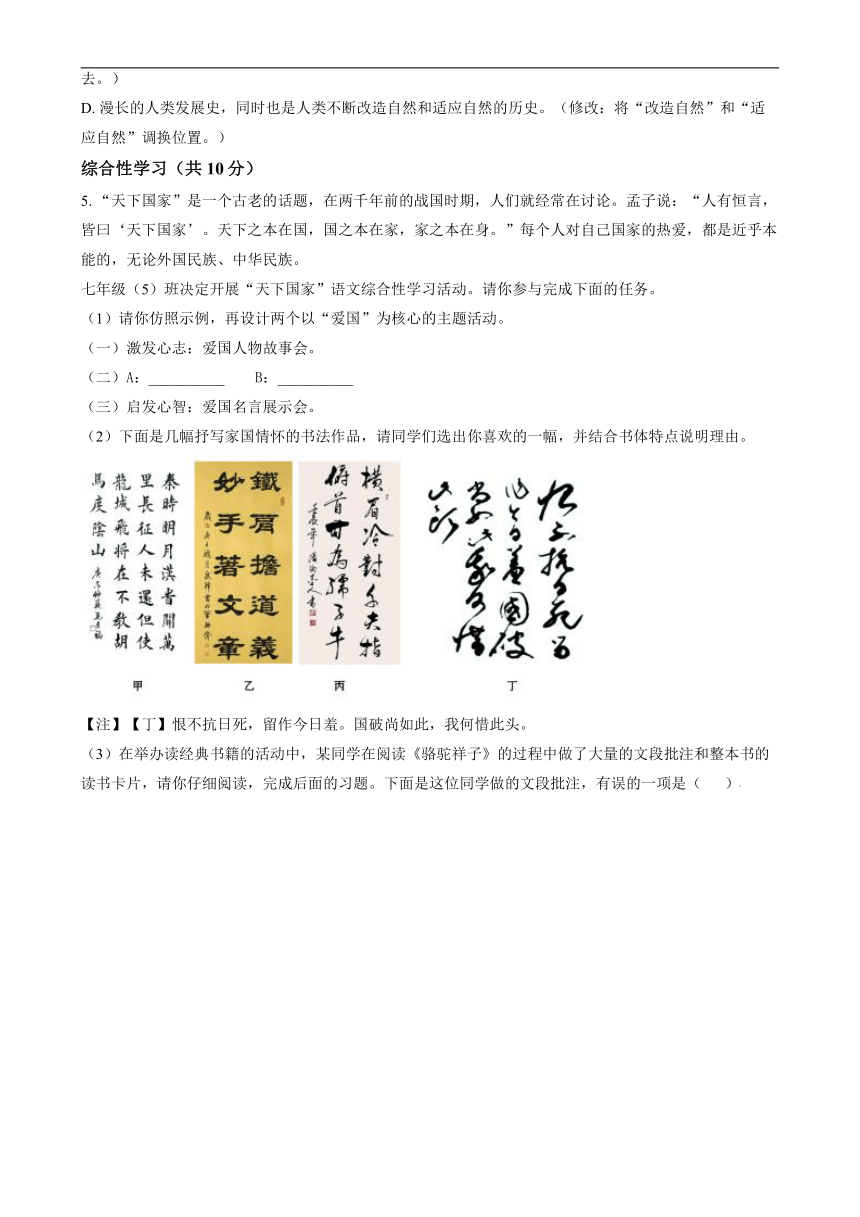 去。）
D. 漫长的人类发展史，同时也是人类不断改造自然和适应自然的历史。（修改：将“改造自然”和“适
应自然”调换位置。）
综合性学习（共 10 分）
5. “天下国家”是一个古老的话题，在两千年前的战国时期，人们就经常在讨论。孟子说：“人有恒言，
皆曰‘天下国家’。天下之本在国，国之本在家，家之本在身。”每个人对自己国家的热爱，都是近乎本
能的，无论外国民族、中华民族。
七年级（5）班决定开展“天下国家”语文综合性学习活动。请你参与完成下面的任务。
（1）请你仿照示例，再设计两个以“爱国”为核心的主题活动。
（一）激发心志：爱国人物故事会。
（二）A：__________ B：__________
（三）启发心智：爱国名言展示会。
（2）下面是几幅抒写家国情怀的书法作品，请同学们选出你喜欢的一幅，并结合书体特点说明理由。
秦時明月漢者關萬
里長征人未還但使
龍城飛将在不教胡
馬度陰山
鐵肩擔道義
妙手著文章
横眉冷對千夫指
俯首甘為孺子牛
恨不抗日死留
作今日羞國破
尚如此我何惜
此头
甲 乙 丙 丁
【注】【丁】恨不抗日死，留作今日羞。国破尚如此，我何惜此头。
（3）在举办读经典书籍的活动中，某同学在阅读《骆驼祥子》的过程中做了大量的文段批注和整本书的
读书卡片，请你仔细阅读，完成后面的习题。下面是这位同学做的文段批注，有误的一项是（ ）